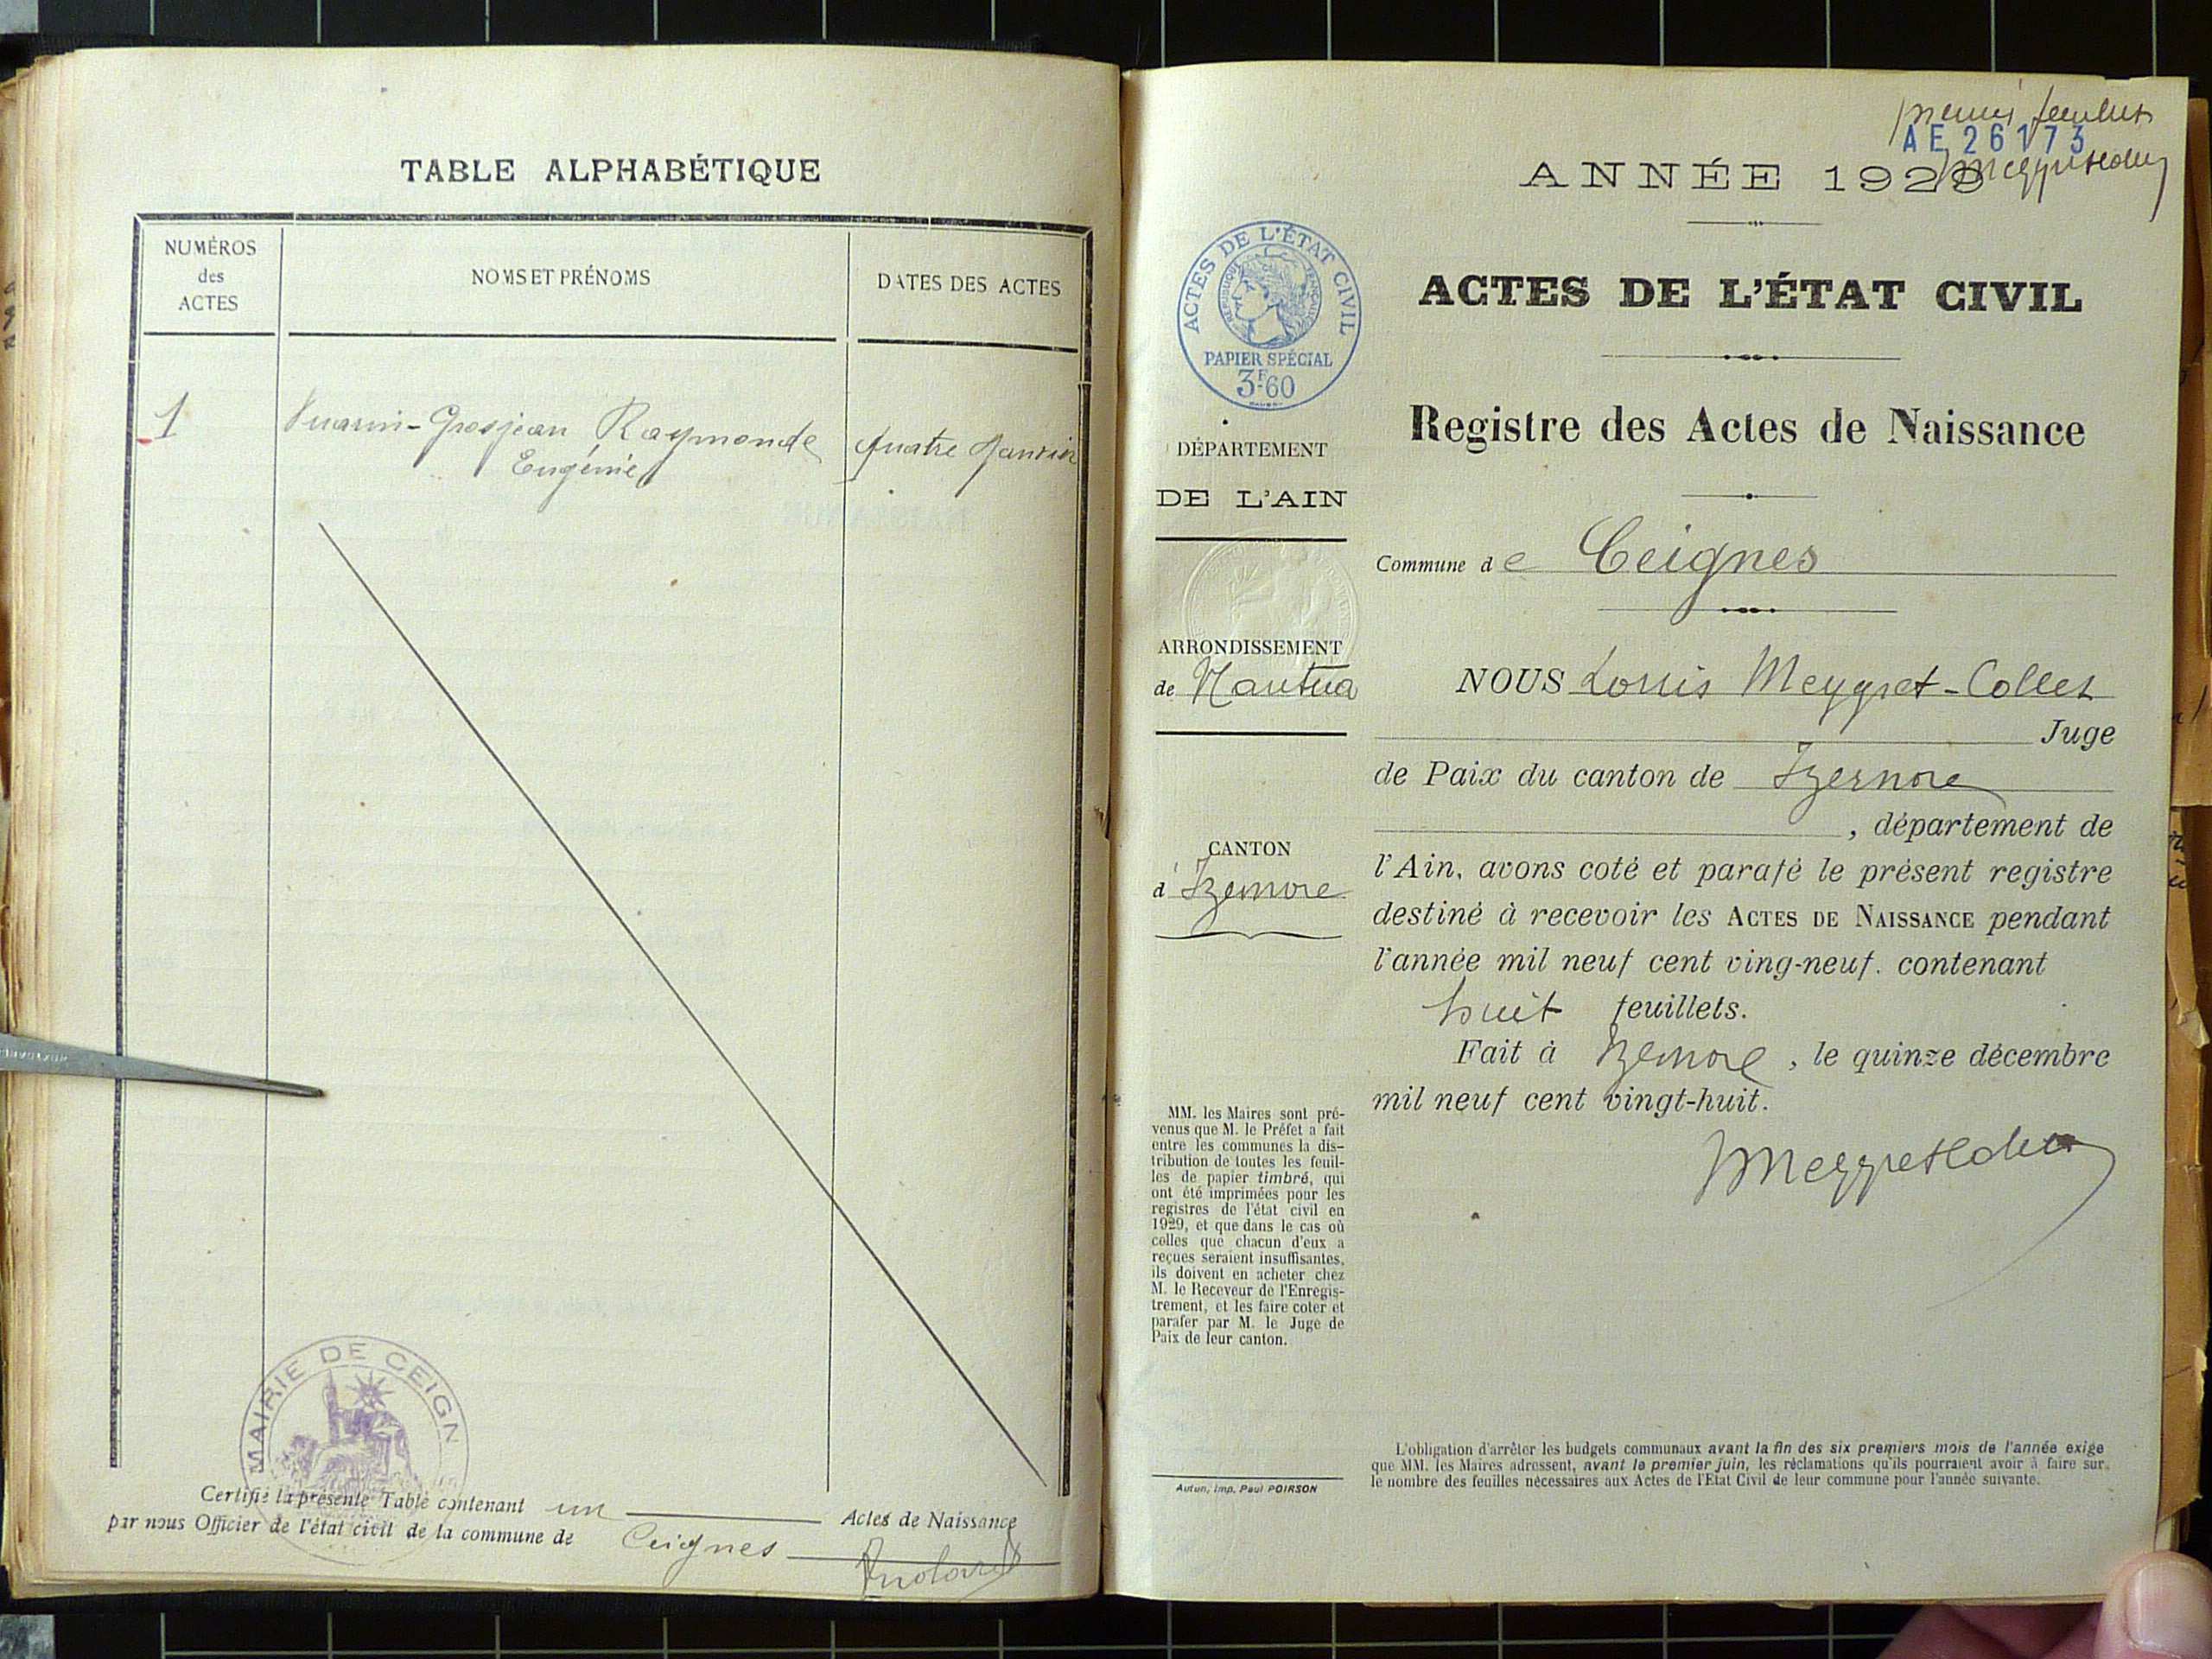 TABLE ALPHABÉTIQUE
NUMÉROS
des
ACTES
NOMS ET PRÉNOMS
DATES DES ACTES
1
Vuarin-Grosjean Raymonde
Eugénie
quatre Janvier
MAIRIE DE CEIGN
Certifié la présente Table contenant un Actes de Naissance
par nous Officier de l'état civil de la commune de Ceignes
premier feuillet
AE 26173
ANNÉE 1929
ACTES DE L'ÉTAT CIVIL
RÉPUBLIQUE FRANÇAISE
PAPIER SPÉCIAL
3F60
ACTES DE L'ÉTAT CIVIL
Registre des Actes de Naissance
DÉPARTEMENT
DE L'AIN
Commune de Ceignes
ARRONDISSEMENT
de Nantua
CANTON
d'Izernore
NOUS Louis Meygret-Collet
Juge
de Paix du canton de Izernore
, département de
l'Ain, avons coté et parafé le présent registre
destiné à recevoir les ACTES DE NAISSANCE pendant
l'année mil neuf cent ving-neuf. contenant
huit feuillets.
Fait à Izernore, le quinze décembre
mil neuf cent vingt-huit.
Meygret Collet
MM. les Maires sont pré-
venus que M. le Préfet a fait
entre les communes la dis-
tribution de toutes les feuil-
les de papier timbré, qui
ont été imprimées pour les
registres de l'état civil en
1929, et que dans le cas où
celles que chacun d'eux a
reçues seraient insuffisantes,
ils doivent en acheter chez
M. le Receveur de l'Enregis-
trement, et les faire coter et
parafer par M. le Juge de
Paix de leur canton.
Autun, Imp. Paul POIRSON
L'obligation d'arrêter les budgets communaux avant la fin des six premiers mois de l'année exige
que MM. les Maires adressent, avant le premier juin, les réclamations qu'ils pourraient avoir à faire sur
le nombre des feuilles nécessaires aux Actes de l'Etat Civil de leur commune pour l'année suivante.